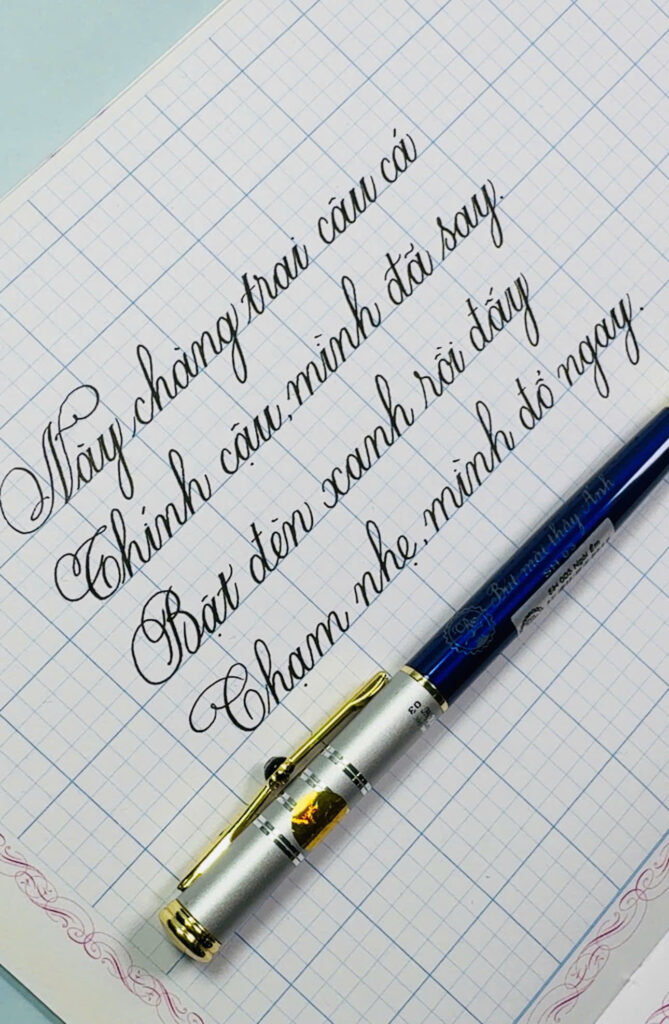 Này chàng trai câu cá
Chính cậu, mình đã say.
Bật đèn xanh rồi đấy
Chạm nhẹ, mình đổ ngay.
Bút mài thầy Ánh
SH 03